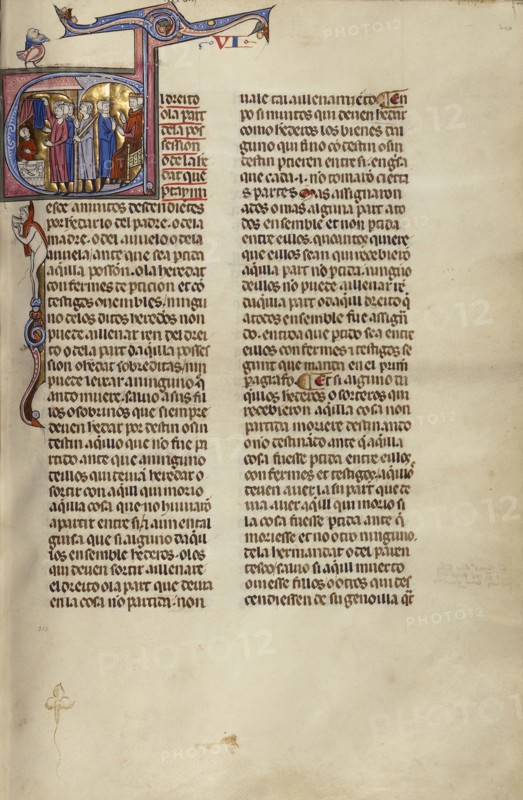 VI
l dreito
o la part
de la pos
session
o de la he
dat que
ptaynn
esce a muitos descendietes
por hedario del padre o dela
madre o del auuelo o dela
auuela ante que sea ptida
aqlla possión o la heredat
con fermes de pticion et co
testigos o nembles ningu
no de los ditos herederos non
puede aillenar ren del drei
to o de la part da qlla posses
sion o hedat sobreditas nin
puede leixar a ninguno q
ante muere saluo a sus fi
ios o sobrinos que siempre
deuen hedar por destin o sin
destin aqllo que no fue pa
rtido ante que a ninguno
dellos qui tenia heredar o
sortir con aqll qui morio
aqlla cosa que no huuiaro
a partir entre si a aun en tal
guisa que si alguno daqu
los ensemble hederos o los
qui deuen sortir aillenare
el dreito o la part que deuia
en la cosa no partida non
uale tal aillenamieto En
po si muitos qui deuen hedar
como hederos los bienes dal
guno qui fino co destin o sin
destin prieren entre si en gsa
que cada i no tomaro cierta
s partes Mas assignaron
ados o mas alguna part a to
dos ensemble et non ptida
entre eillos quoantos quiere
que eillos sean qui recebiero
aqlla part no ptida ninguno
deillos no puede aillenar re
daqlla part o daqll dreito q
a todos ensemble fue assign
do en tro a que ptido sea entre
eillos con fermes i testigos se
gunt que manda en el prim
paragrafo Et si alguno da
quilos hederos o sorteros qui
recebieron aqlla cosa non
partida moriere destinando
o no destinado ante q aqlla
cosa fuesse ptida entre eillos
con fermes et testigos aqllo
deuen auer la su part que te
nia auer aqll qui morio si
la cosa fuesse ptida ante q
moriesse et no otro ninguno
de la hermandat o del paren
tesco saluo si aqll muerto
ouiesse fillos o otros qui des
cendiessen de su genoilla qr
PHOTO12